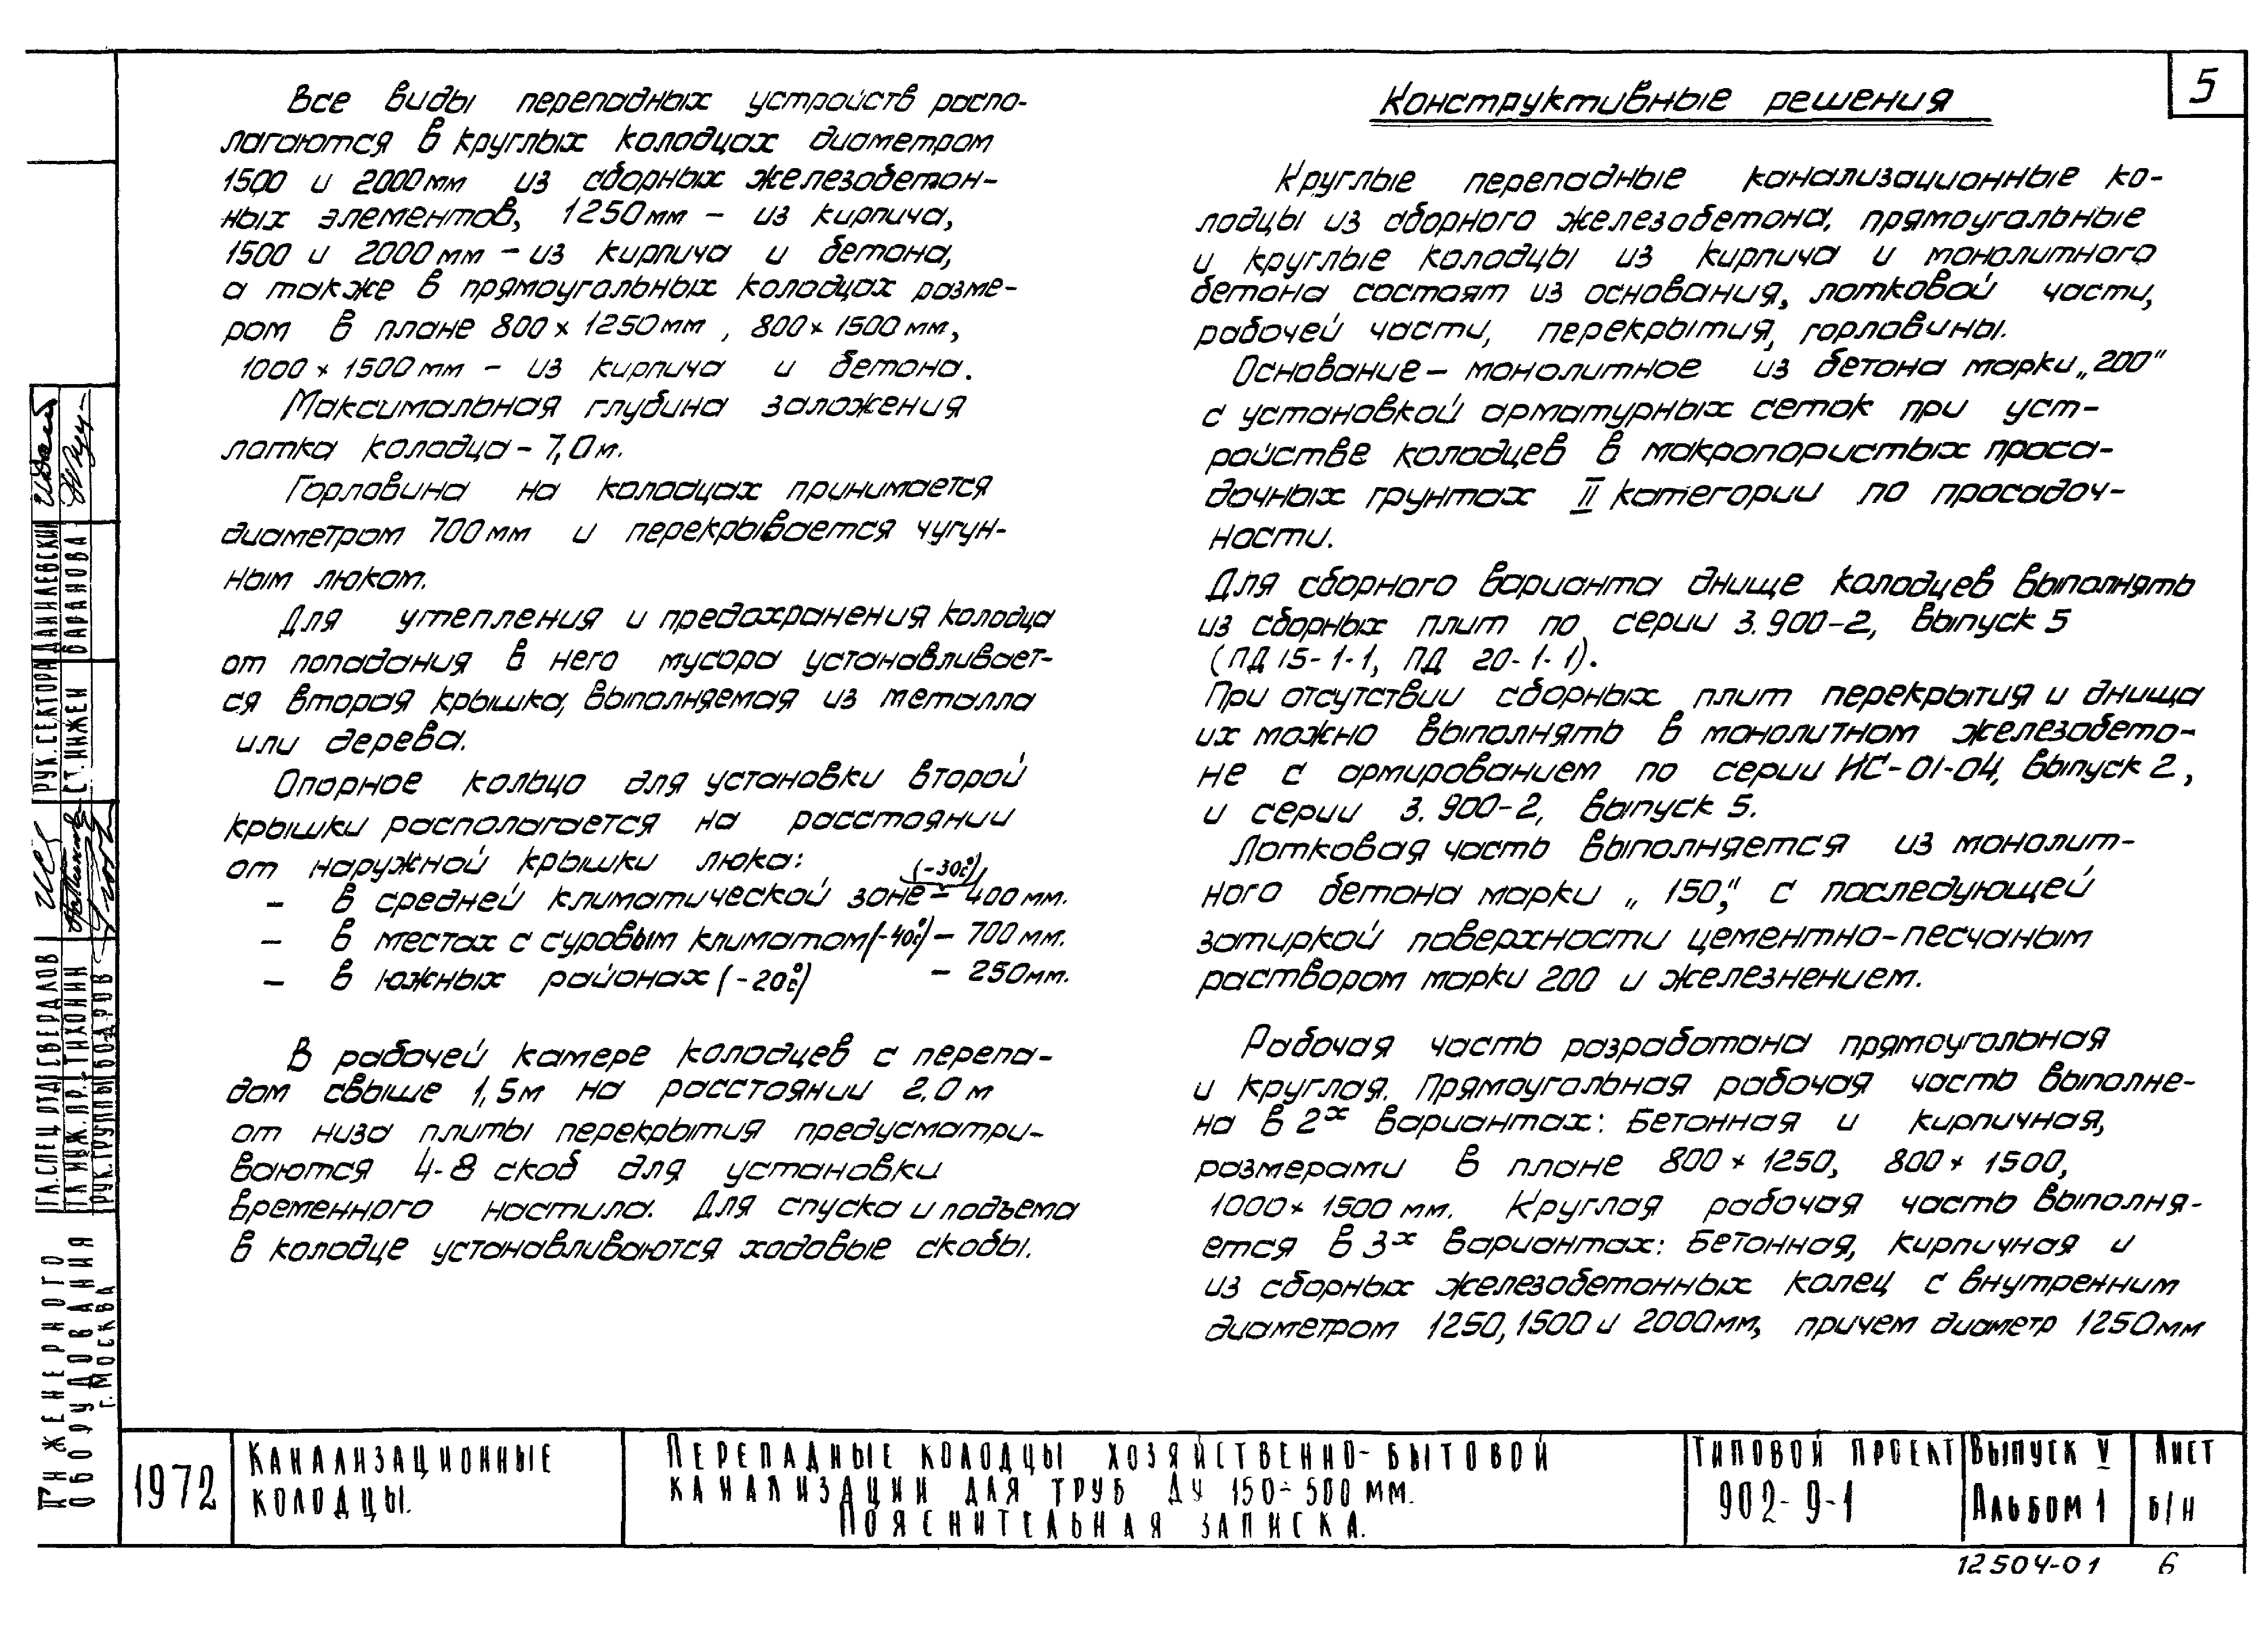 5
Все виды перепадных устройств распо-
лагаются в круглых колодцах диаметром
1500 и 2000мм из сборных железобетон-
ных элементов, 1250мм – из кирпича,
1500 и 2000мм – из кирпича и бетона,
а также в прямоугольных колодцах разме-
ром в плане 800×1250мм, 800×1500мм,
1000×1500мм – из кирпича и бетона.
Максимальная глубина заложения
лотка колодца – 7,0м.
Горловина на колодцах принимается
диаметром 700мм и перекрывается чугун-
ным люком.
Для утепления и предохранения колодца
от попадания в него мусора устанавливает-
ся вторая крышка, выполняемая из металла
или дерева.
Опорное кольцо для установки второй
крышки располагается на расстоянии
от наружной крышки люка:
– в средней климатической зоне (-30°с) – 400мм.
– в местах с суровым климатом (-40°с) – 700мм.
– в южных районах (-20°с) – 250мм.
В рабочей камере колодцев с перепа-
дом свыше 1,5м на расстоянии 2,0м
от низа плиты перекрытия предусматри-
ваются 4-8 скоб для установки
временного настила. Для спуска и подъема
в колодце устанавливаются ходовые скобы.
Конструктивные решения
Круглые перепадные канализационные ко-
лодцы из сборного железобетона, прямоугольные
и круглые колодцы из кирпича и монолитного
бетона состоят из основания, лотковой части,
рабочей части, перекрытия, горловины.
Основание – монолитное из бетона марки „200"
с установкой арматурных сеток при уст-
ройстве колодцев в макропористых проса-
дочных грунтах II категории по просадоч-
ности.
Для сборного варианта днище колодцев выполнять
из сборных плит по серии 3.900-2, выпуск 5
(ПД 15-1-1, ПД 20-1-1).
При отсутствии сборных плит перекрытия и днища
их можно выполнять в монолитном железобето-
не с армированием по серии ИС-01-04, выпуск 2,
и серии 3.900-2, выпуск 5.
Лотковая часть выполняется из монолит-
ного бетона марки „150", с последующей
затиркой поверхности цементно-песчаным
раствором марки 200 и железнением.
Рабочая часть разработана прямоугольная
и круглая. Прямоугольная рабочая часть выполне-
на в 2х вариантах: бетонная и кирпичная,
размерами в плане 800×1250, 800×1500,
1000×1500мм. Круглая рабочая часть выполня-
ется в 3х вариантах: бетонная, кирпичная и
из сборных железобетонных колец с внутренним
диаметром 1250, 1500 и 2000мм, причем диаметр 1250мм
РУК. СЕКТОРА ДАНИЛЕВСКИЙ
СТ. ИНЖЕН БАРАНОВА
ГЛ. СПЕЦ ОТД СВЕРДЛОВ
ГЛ. ИНЖ. ПР. ТИХОНИН
РУК. ГРУППЫ БОДРОВ
ИНЖЕНЕРНОГО
ОБОРУДОВАНИЯ
Г. МОСКВА
1972
КАНАЛИЗАЦИОННЫЕ
КОЛОДЦЫ.
ПЕРЕПАДНЫЕ КОЛОДЦЫ ХОЗЯЙСТВЕННО-БЫТОВОЙ
КАНАЛИЗАЦИИ ДЛЯ ТРУБ ДУ 150÷500 ММ.
ПОЯСНИТЕЛЬНАЯ ЗАПИСКА.
ТИПОВОЙ ПРОЕКТ
902-9-1
ВЫПУСК V
АЛЬБОМ 1
ЛИСТ
Б/Н
12504-01 6